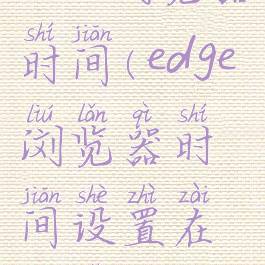 shí jiān
时间(edge
liú lǎn qì shí
浏览器时
jiān shè zhì zài
间设置在